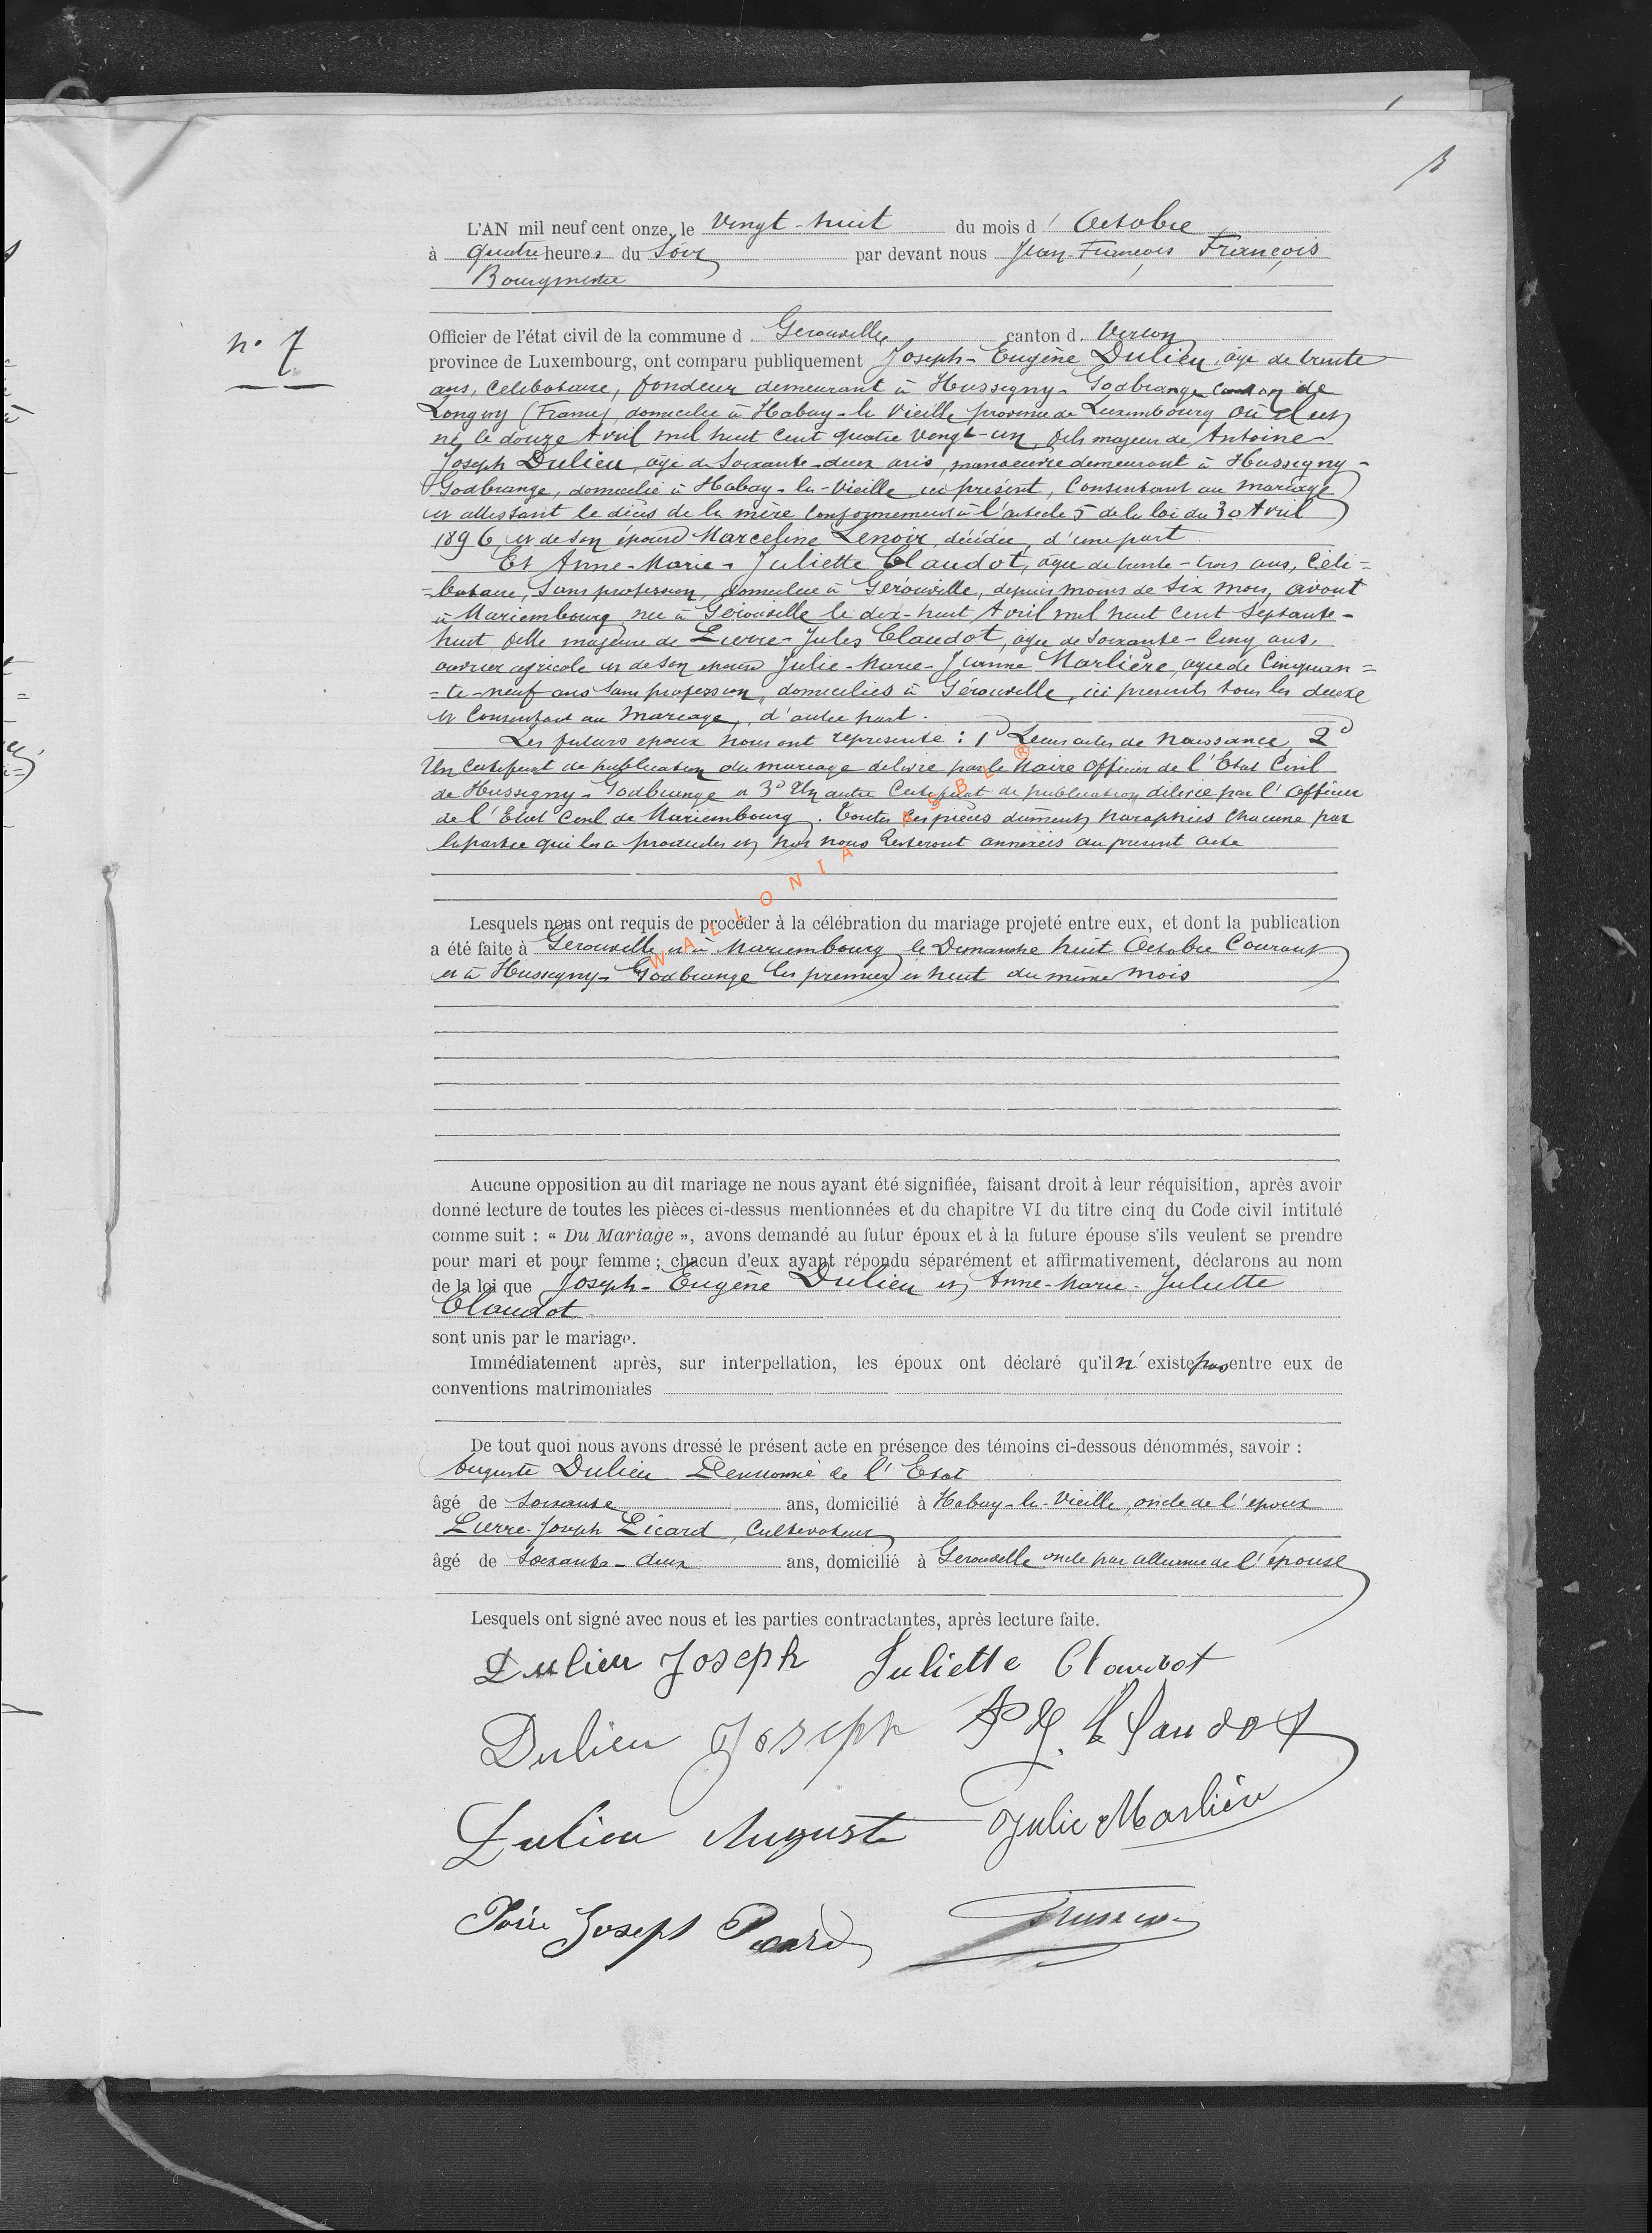 L'AN mil neuf cent onze, le Vingt-huit du mois d' Octobre
à quatre heures du Soir par devant nous Jean-François François
Bourgmestre
n° 7
Officier de l'état civil de la commune d Gerouville canton d. Virton
province de Luxembourg, ont comparu publiquement Joseph-Eugène Dulieu, âgé de trente
ans, célibataire, fondeur demeurant à Hussigny-Godbrange canton de
Longwy (France) domicilié à Habay-la Vieille province de Luxembourg où il est
né le douze Avril mil huit cent quatre vingt-un, fils majeur de Antoine
Joseph Dulieu, âgé de Soixante-deux ans, manoeuvre demeurant à Hussigny-
Godbrange, domicilié à Habay-la-Vieille ici présent, Consentant au mariage
et attestant le décès de la mère Conformément à l'article 5 de la loi du 30 Avril
1896 et de son épouse Marceline Lenoir, décédée, d'une part
Et Anne-Marie-Juliette Claudot, âgée de trente-trois ans, Céli=
=bataire, Sans profession, domiciliée à Gérouville, depuis moins de Six mois, avant
à Mariembourg née à Gérouville le dix-huit Avril mil huit Cent Septante-
huit fille majeure de Pierre-Jules Claudot, âgé de Soixante-Cinq ans,
ouvrier agricole et de son épouse Julie-Marie-Jeanne Marlière, âgée de Cinquan=
=te-neuf ans Sans profession, domiciliés à Gérouville, ici présents tous les deux
et Consentant au mariage, d'autre part.
Les futurs époux nous ont représenté : 1° Leurs actes de Naissance 2°
Un Certificat de publication du mariage délivré par le Maire Officier de l'Etat Civil
de Hussigny-Godbrange et 3° Un autre Certificat de publication délivré par l'Officier
de l'Etat Civil de Mariembourg. Toutes les pièces dûment paraphées Chacune par
la partie qui les a produites et par nous Resteront annexées au présent acte
WALLONIA ASBL ®
Lesquels nous ont requis de procéder à la célébration du mariage projeté entre eux, et dont la publication
a été faite à Gerouville et à Mariembourg le Dimanche huit Octobre Courant
et à Hussigny-Godbrange les premier et huit du même mois
Aucune opposition au dit mariage ne nous ayant été signifiée, faisant droit à leur réquisition, après avoir
donné lecture de toutes les pièces ci-dessus mentionnées et du chapitre VI du titre cinq du Code civil intitulé
comme suit : « Du Mariage », avons demandé au futur époux et à la future épouse s'ils veulent se prendre
pour mari et pour femme ; chacun d'eux ayant répondu séparément et affirmativement, déclarons au nom
de la loi que Joseph-Eugène Dulieu et Anne-Marie-Juliette
Claudot
sont unis par le mariage.
Immédiatement après, sur interpellation, les époux ont déclaré qu'il n'existe pas entre eux de
conventions matrimoniales
De tout quoi nous avons dressé le présent acte en présence des témoins ci-dessous dénommés, savoir :
Auguste Dulieu Pensionné de l'Etat
âgé de Soixante ans, domicilié à Habay-la-Vieille, oncle de l'époux
Pierre-Joseph Picard, Cultivateur
âgé de Soixante-deux ans, domicilié à Gerouville oncle par alliance de l'épouse
Lesquels ont signé avec nous et les parties contractantes, après lecture faite.
Dulieu Joseph Juliette Claudot
Dulieu Joseph P J. Claudot
Dulieu Auguste Julie Marlière
Joseph Picard François